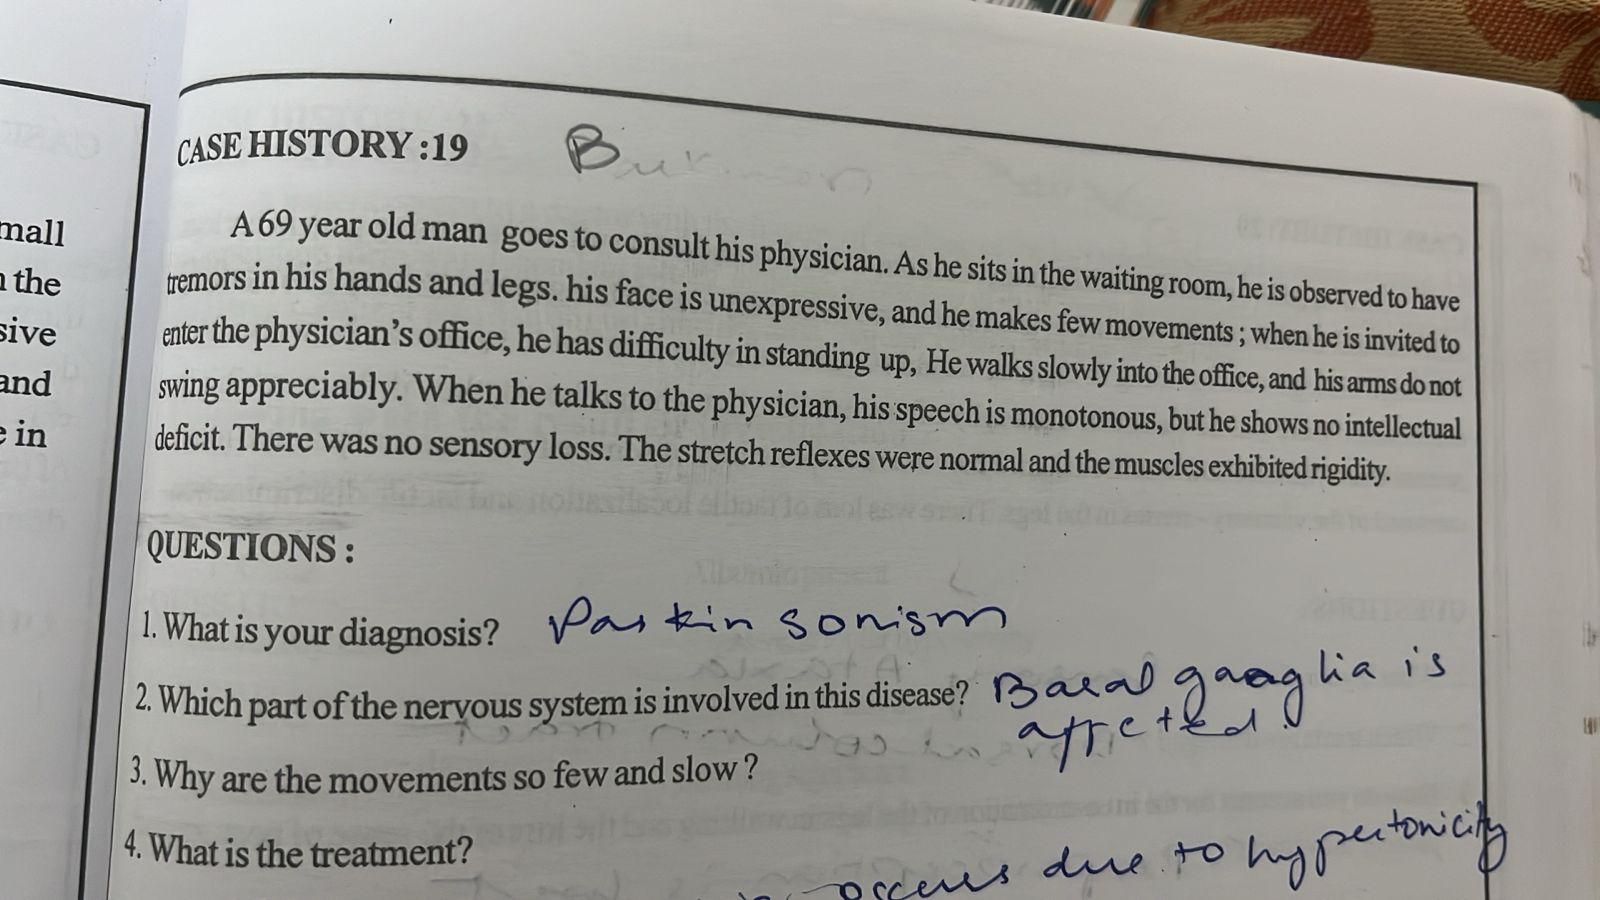 mall
the
sive
and
in
CASE HISTORY :19
A 69 year old man goes to consult his physician. As he sits in the waiting room, he is observed to have
tremors in his hands and legs. his face is unexpressive, and he makes few movements ; when he is invited to
enter the physician's office, he has difficulty in standing up, He walks slowly into the office, and his arms do not
swing appreciably. When he talks to the physician, his speech is monotonous, but he shows no intellectual
deficit. There was no sensory loss. The stretch reflexes were normal and the muscles exhibited rigidity.
QUESTIONS :
1. What is your diagnosis? Parkinsonism
2. Which part of the nervous system is involved in this disease? Basal ganglia is
affected.
3. Why are the movements so few and slow ?
4. What is the treatment?
occurs due to hypertonicity